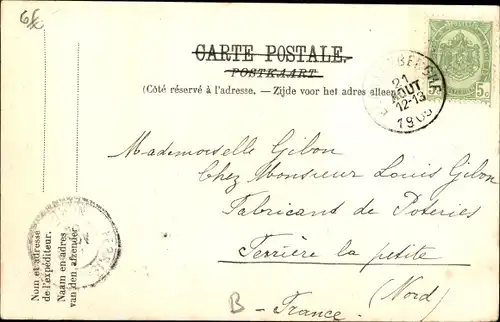 CARTE POSTALE.
POSTKAART.
(Côté réservé à l'adresse. — Zijde voor het adres alleen
21
AOUT
12-13
5c 5c
Mademoiselle Gibon
Chez Monsieur Louis Gibon
Fabricant de Poteries
Ferrière la petite
(Nord)
B - France
Nom et adresse
de l'expéditeur.
Naam en adres
van den afzender